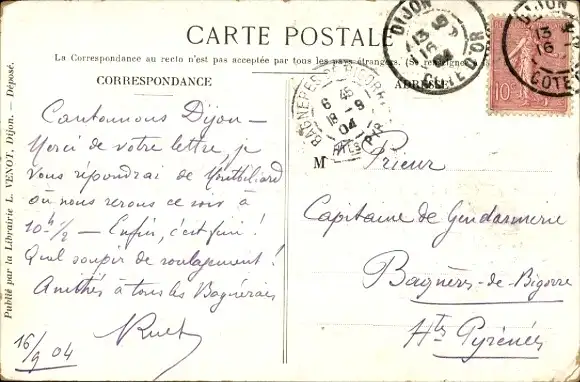 CARTE POSTALE
La Correspondance au recto n'est pas acceptée par tous les pays étrangers. (Se renseigner
CORRESPONDANCE
ADRESSE
Cantonnons Dijon —
Merci de votre lettre, je
vous répondrai de Montbéliard
où nous serons ce soir à
10h 1/2 — Enfin, c'est fini !
Quel soupir de soulagement !
Amitiés à tous les Bagnérais
16/9 04
M Prieur
Capitaine de Gendarmerie
Bagnères-de-Bigorre
Htes Pyrénées
Publié par la Librairie L. VENOT, Dijon. — Déposé.
DIJON
13
16
04
COTE D'OR
BAGNERES DE BIGORRE
6 45
18 - 9
04
HTES PYR
10c
DIJON
13
16
COTE